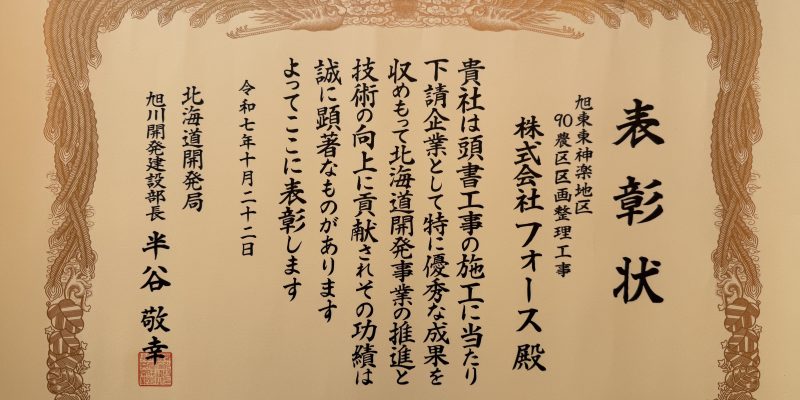 表彰状
旭東東神楽地区
90農区区画整理工事
株式会社フォース殿
貴社は頭書工事の施工に当たり
下請企業として特に優秀な成果を
収めもって北海道開発事業の推進と
技術の向上に貢献されその功績は
誠に顕著なものがあります
よってここに表彰します
令和七年十月二十二日
北海道開発局
旭川開発建設部長 半谷敬幸